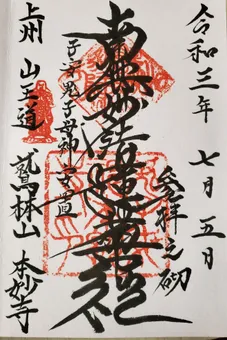 令和三年 七月 五日
参拝之砌
南無妙法蓮華経
子安鬼子母神安置
上州 山王道
鷲林山 本妙寺